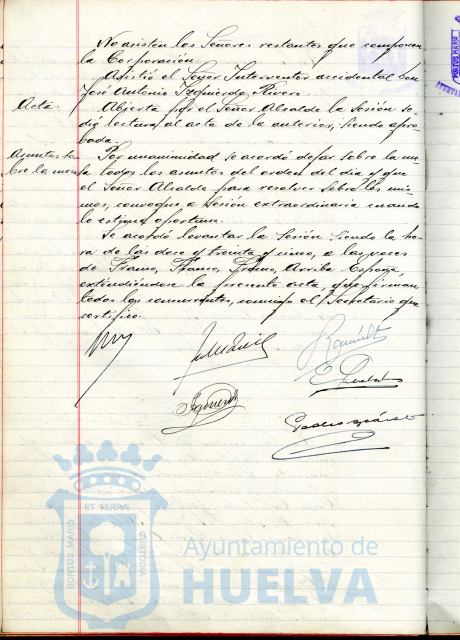 No asisten los Señores restantes que componen
la Corporación.
Asistió el Señor Interventor accidental Don
José Antonio Izquierdo Rivero.
Acta.
Abierta por el Señor Alcalde la Sesión se
dió lectura al acta de la anterior, siendo apro-
bada.
Asuntos so-
bre la mesa
Por unanimidad se acordó dejar sobre la me-
sa todos los asuntos del orden del día y que
el Señor Alcalde para resolver sobre los mis-
mos, convoque a Sesión extraordinaria cuando
lo estime oportuno.
Se acordó levantar la Sesión siendo la ho-
ra de las doce y treinta y cinco, a las voces
de Franco, Franco, Franco, Arriba España,
extendiéndose la presente acta, que firman
todos los concurrentes, conmigo el Secretario que
certifico.
ET TERRÆ
PORTUS MARIS
CUSTODIA
Ayuntamiento de
HUELVA